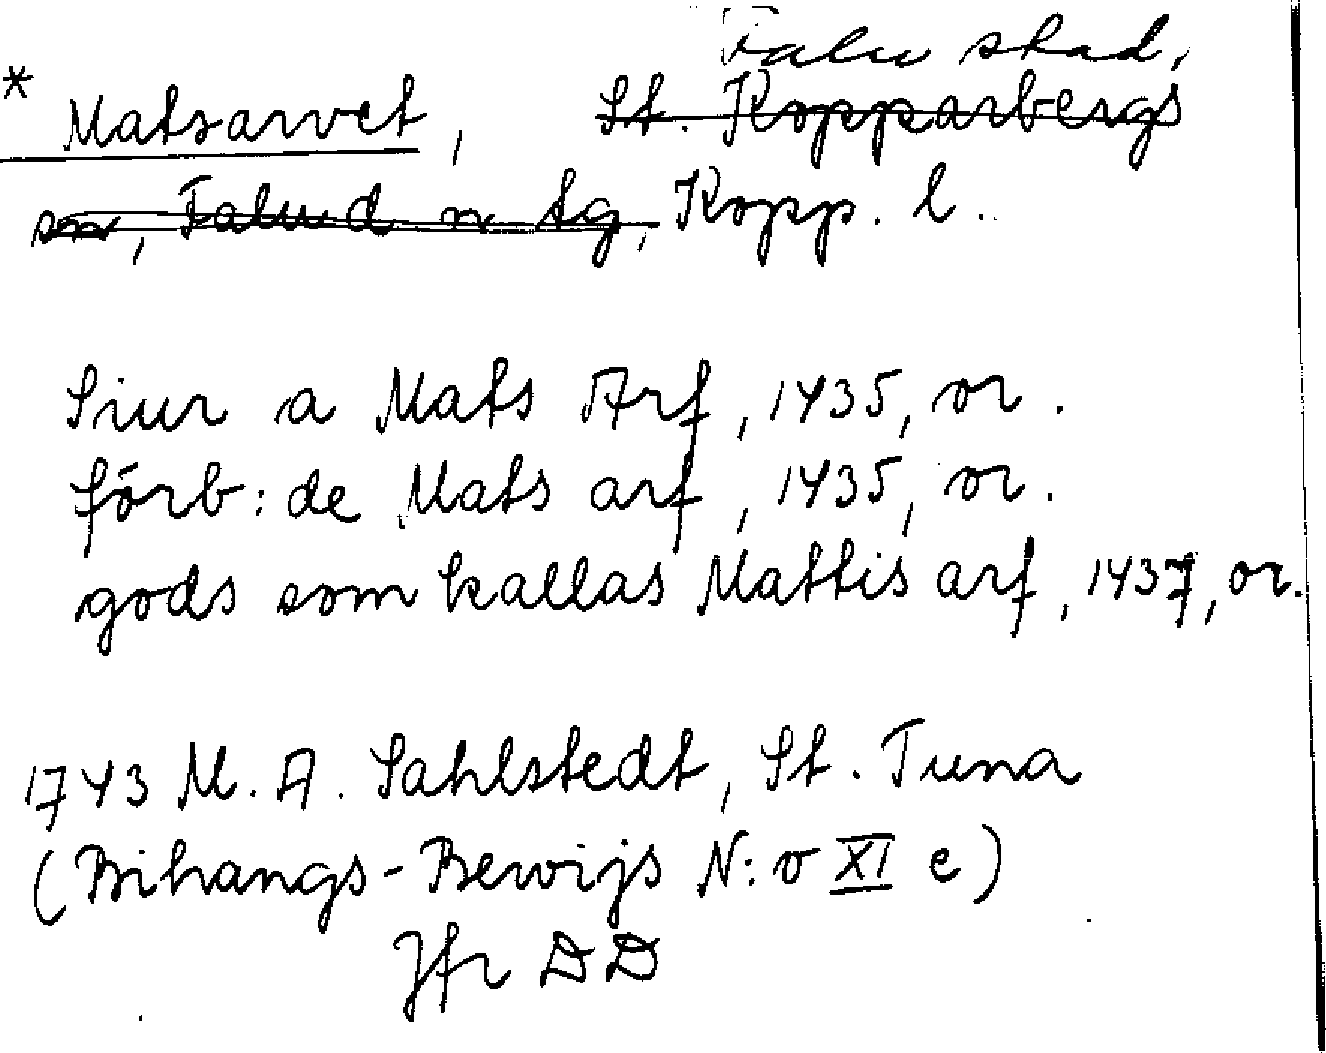 Falu stad,
* Matsarvet, St. Kopparbergs
sn, Falu d n tg, Kopp. l.
Siur a Mats Arf, 1435, or.
förb: de Mats arf, 1435, or.
gods som kallas Mattis arf, 1437, or.
1743 M. A. Sahlstedt, St. Tuna
(Bihangs-Bewijs N:o XI e)
Jfr DD